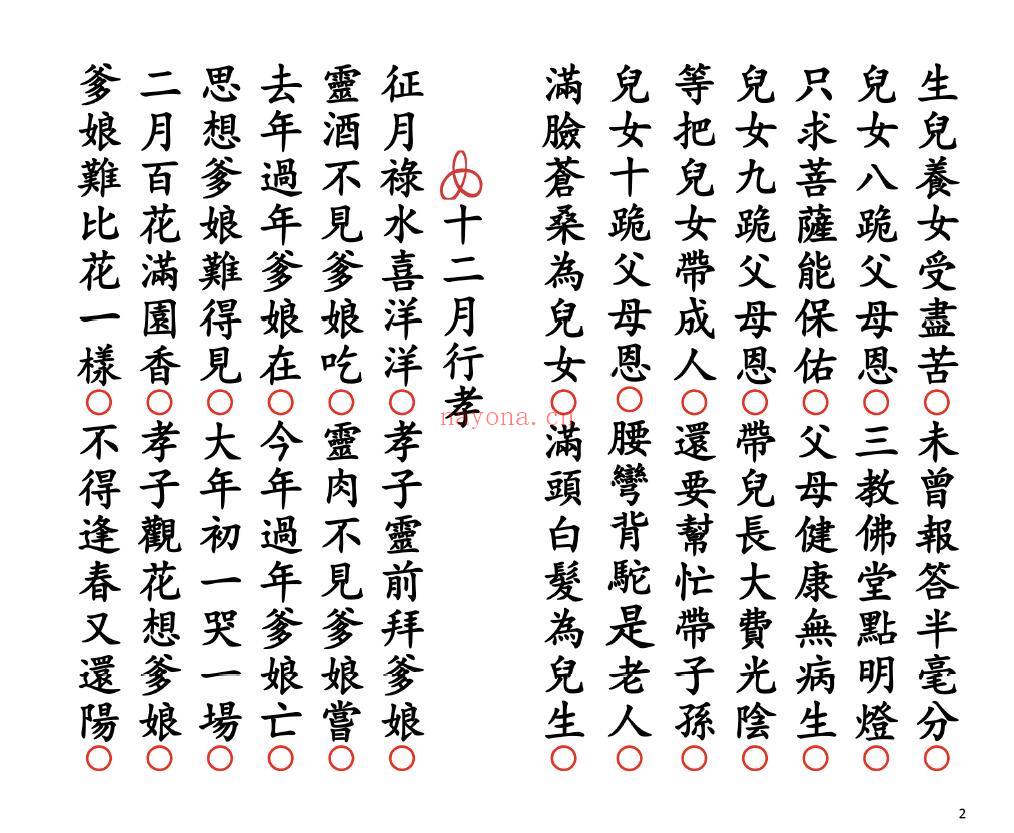 生兒養女受盡苦○未曾報答半毫分○
兒女八跪父母恩○三教佛堂點明燈○
只求菩薩能保佑○父母健康無病生○
兒女九跪父母恩○帶兒長大費光陰○
等把兒女帶成人○還要幫忙帶子孫○
兒女十跪父母恩○腰彎背駝是老人○
滿臉蒼桑為兒女○滿頭白髮為兒生○
十二月行孝
征月祿水喜洋洋○孝子靈前拜爹娘○
靈酒不見爹娘吃○靈肉不見爹娘嘗○
去年過年爹娘在○今年過年爹娘亡○
思想爹娘難得見○大年初一哭一場○
二月百花滿園香○孝子觀花想爹娘○
爹娘難比花一樣○不得逢春又還陽○
nayona.cn
2